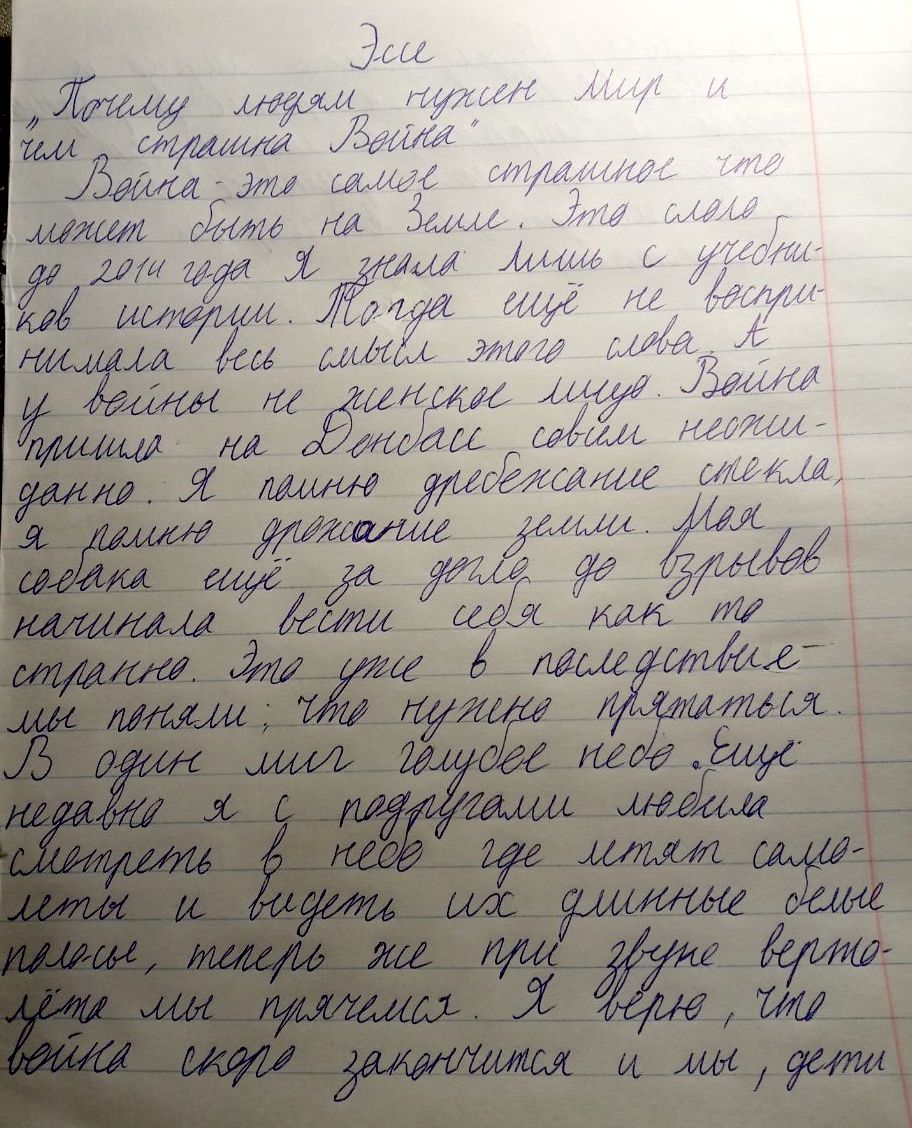 Эссе
„Почему людям нужен Мир и
чем страшна Война"
Война - это самое страшное что
может быть на Земле. Это слово
до 2014 года Я знала лишь с учебни-
ков истории. Тогда ещё не воспри-
нимала весь смысл этого слова. А
у войны не женское лицо. Война
пришла на Донбасс совсем неожи-
данно. Я помню дребежание стекла,
я помню дрожание земли. Моя
собака ещё за долго до взрывов
начинала вести себя как то
странно. Это уже в последствие
мы поняли, что нужно прятаться.
В один миг голубое небо. Ещё
недавно я с подругами любила
смотреть в небо где летят само-
леты и видеть их длинные белые
полосы, теперь же при звуке верто-
лёта мы прячемся. Я верю, что
война скоро закончится и мы, дети